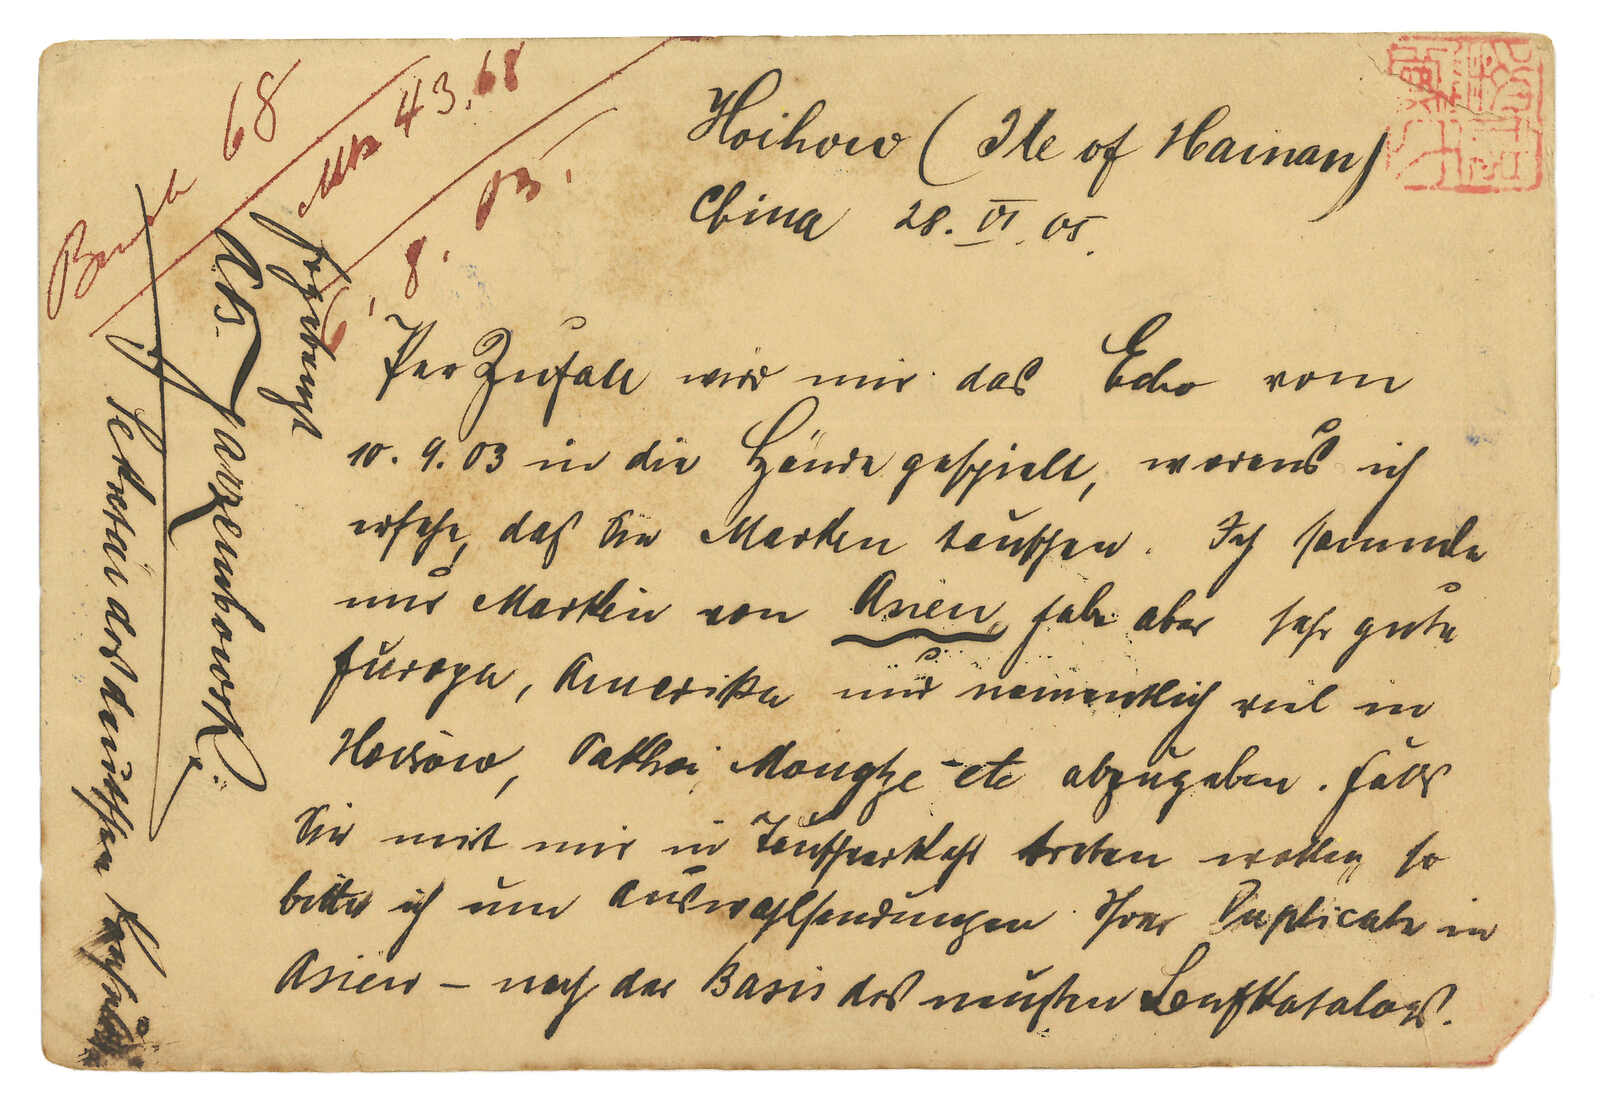 Hoihow (Ile of Hainan)
China 28. VI. 05.
Per Zufall wird mir das Echo vom
10. 9. 03 in die Hände gespielt, woraus ich
ersehe, daß Sie Marken tauschen. Ich sammle
nur Marken von Asien, habe aber sehr gute
Europa, Amerika und namentlich viel in
Hoihow, Pakhoi, Mongtze etc abzugeben. Falls
Sie mit mir in Tauschverkehr treten wollen, so
bitte ich um Auswahlsendungen Ihrer Duplicate in
Asien – nach der Basis des neusten Senfkatalogs.
ergebenst
Abs.
Sekretär des deutschen Konsulats
68
Mk 43.68
8. 03.